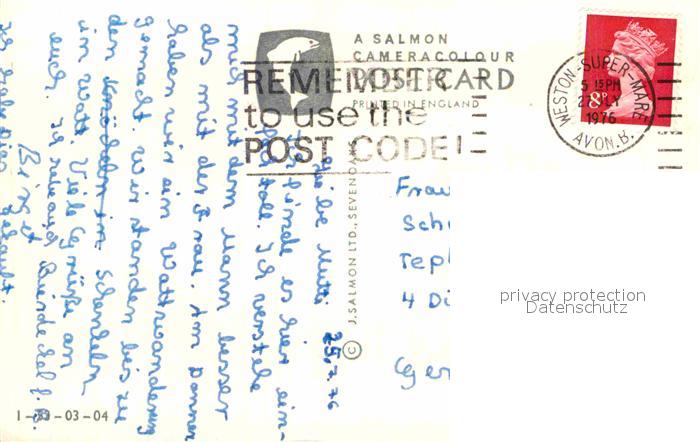 A SALMON
CAMERACOLOUR
POST CARD
PRINTED IN ENGLAND
REMEMBER
to use the
POST CODE!
WESTON-SUPER-MARE
5 15 PM
1976
AVON. B.
8P
© J. SALMON LTD., SEVENO
25.7.76
Liebe Mutti
ich finde es hier ein-
fach toll. Ich verstehe
mich mit dem Mann besser
als mit der Frau. Am Donner
haben wir ein Wattwanderung
gemacht. Wir standen bis zu
den Knöcheln im Schankeln
im Watt. Viele Grüße an
euch.
Birgit
gekauft.
Frau
Sch
Tep
4 Dü
Ger
1-33-03-04
privacy protection
Datenschutz